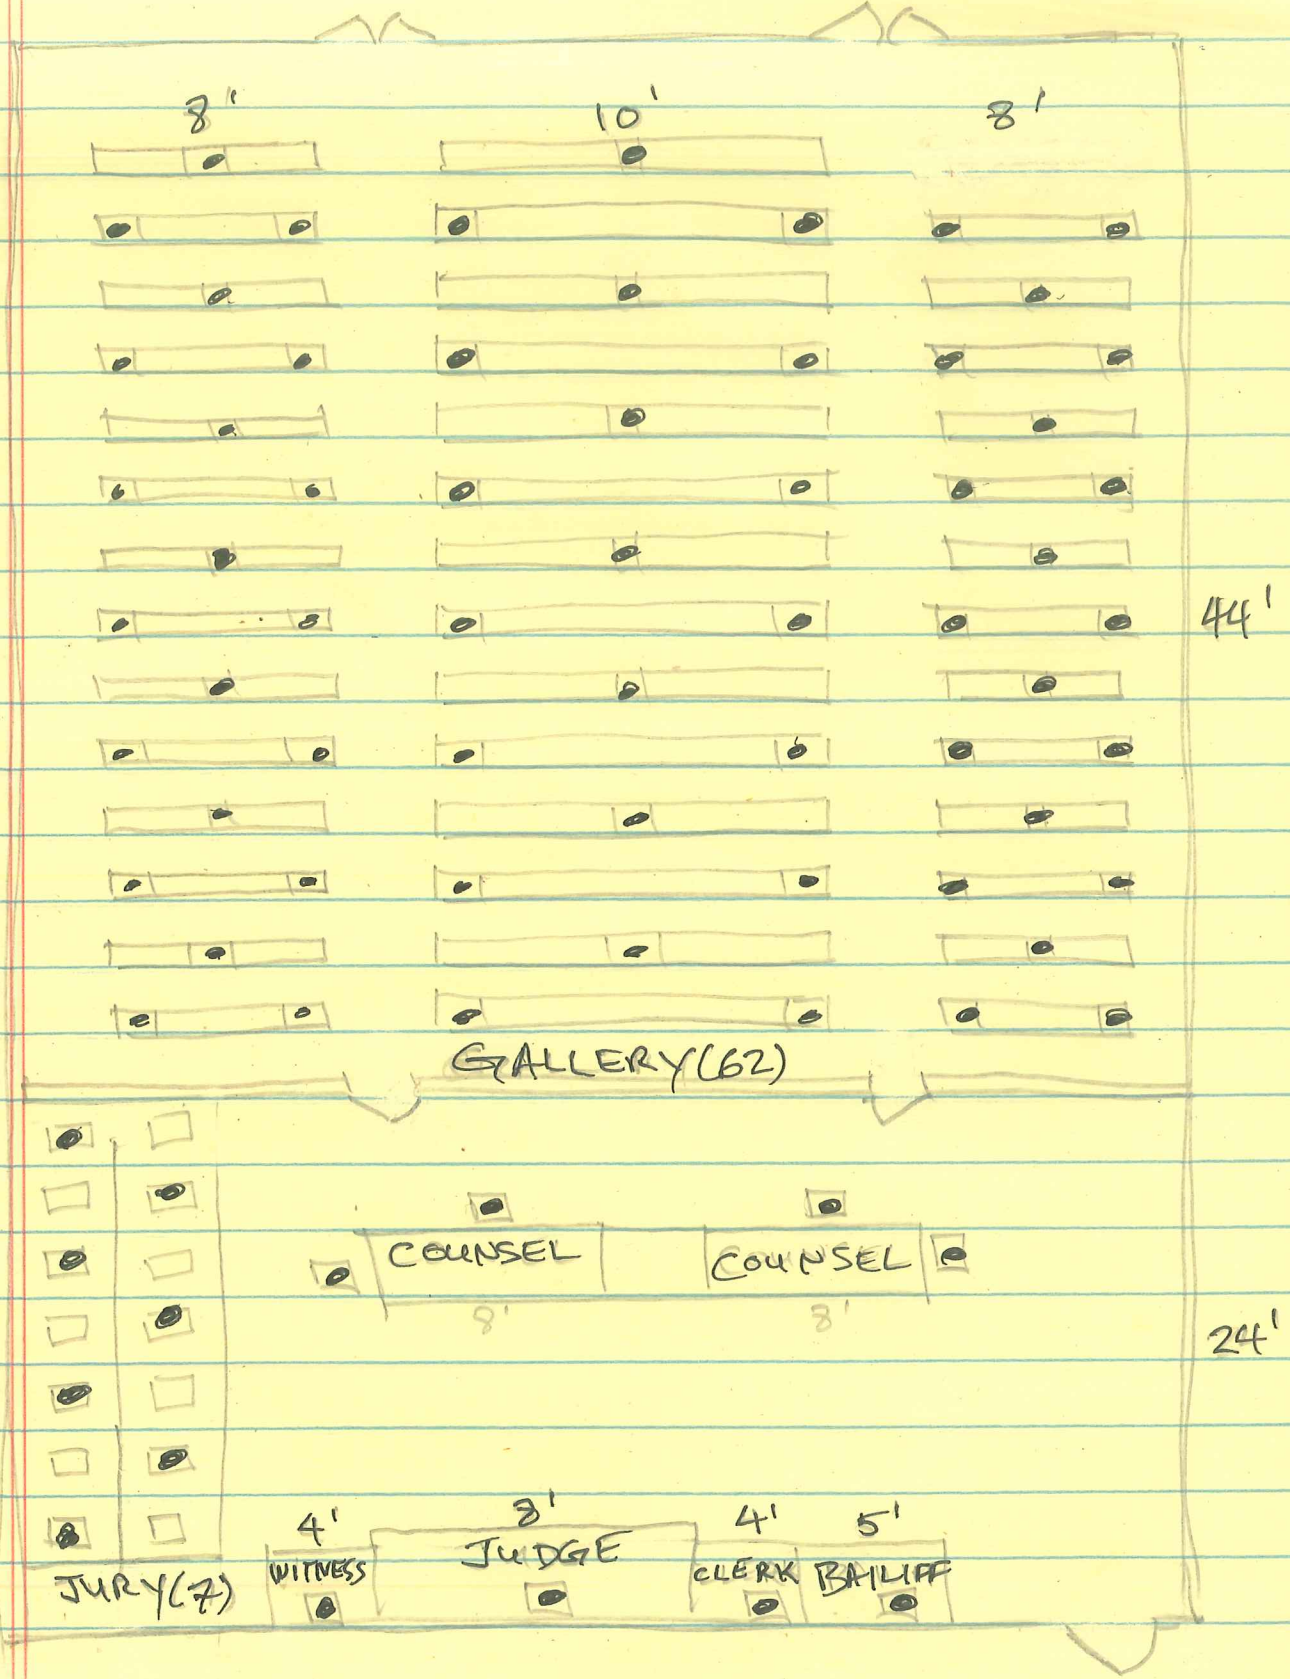 8' 10' 8'
44'
GALLERY(62)
COUNSEL COUNSEL
8' 8'
24'
4' 8' 4' 5'
WITNESS JUDGE CLERK BAILIFF
JURY(7)